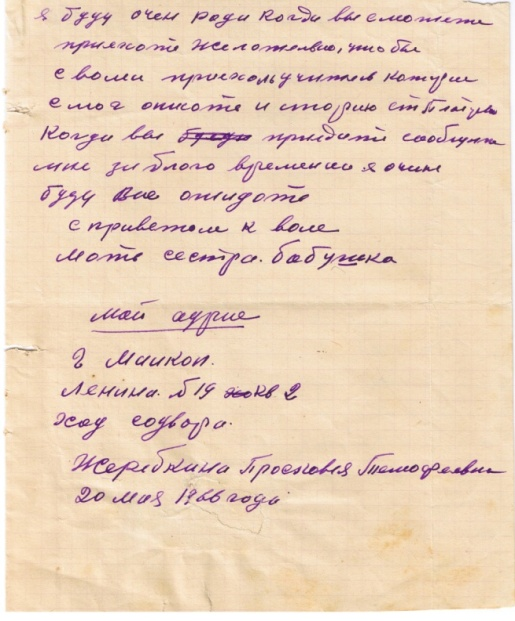 я буду очен ради когда вы сможете
приехоте желотельно, чтобы
с воми приехол учитель которые
смог описоте историю ст
Когда вы приедите сообщите
мне заблого времении я очин
буду вас ожидоте
с приветом к вам
моте сестра. бабушка
мой адрис
г Маикоп.
Ленина. б 19 кв 2
ход содвора.
Жеребкина Просковя Темофеевна
20 мая 1966 года